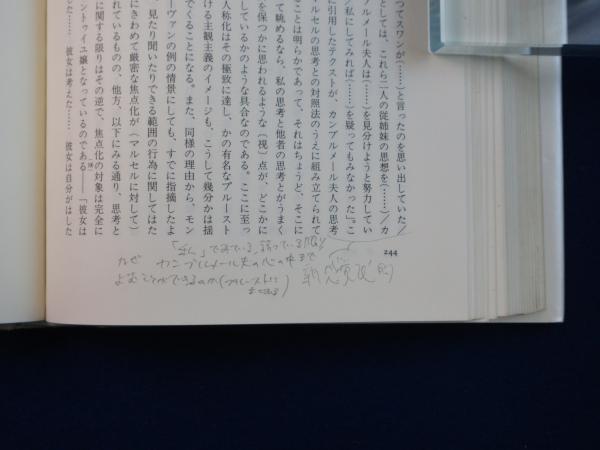 つてスワンが(……)と言ったのを思い出していた/
としては、これら二人の従姉妹の思想を(……)/カ
ブルメール夫人は(……)を見分けようと努力してい
/私にしてみれば(……)を疑ってもみなかった」。こ
に引用したテクストが、カンブルメール夫人の思考
マルセルの思考との対照法のうえに組み立てられて
ことは明らかであって、それはちょうど、そこに
て眺めるなら、私の思考と他者の思考とがうまく
を保つかに思われるような(視)点が、どこかに
しているかのような具合なのである。ここに至っ
人称化はその極致に達し、かの有名なプルースト
ける主観主義のイメージも、こうして幾分かは揺
でくることになる。また、同様の理由から、モン
ーヴァンの例の情景にしても、すでに指摘したよ
、見たり聞いたりできる範囲の行為に関してはた
にきわめて厳密な焦点化が(マルセルに対して)
れているものの、他方、以下にみる通り、思考と
に関する限りはその逆で、焦点化の対象は完全に
ントゥイユ嬢となっているのである——「彼女は
した…… 彼女は考えた…… 彼女は自分がはした
244
「私」で
語っている
なぜ カンブルメール夫の心の中まで
よむことができるのか(プルースト